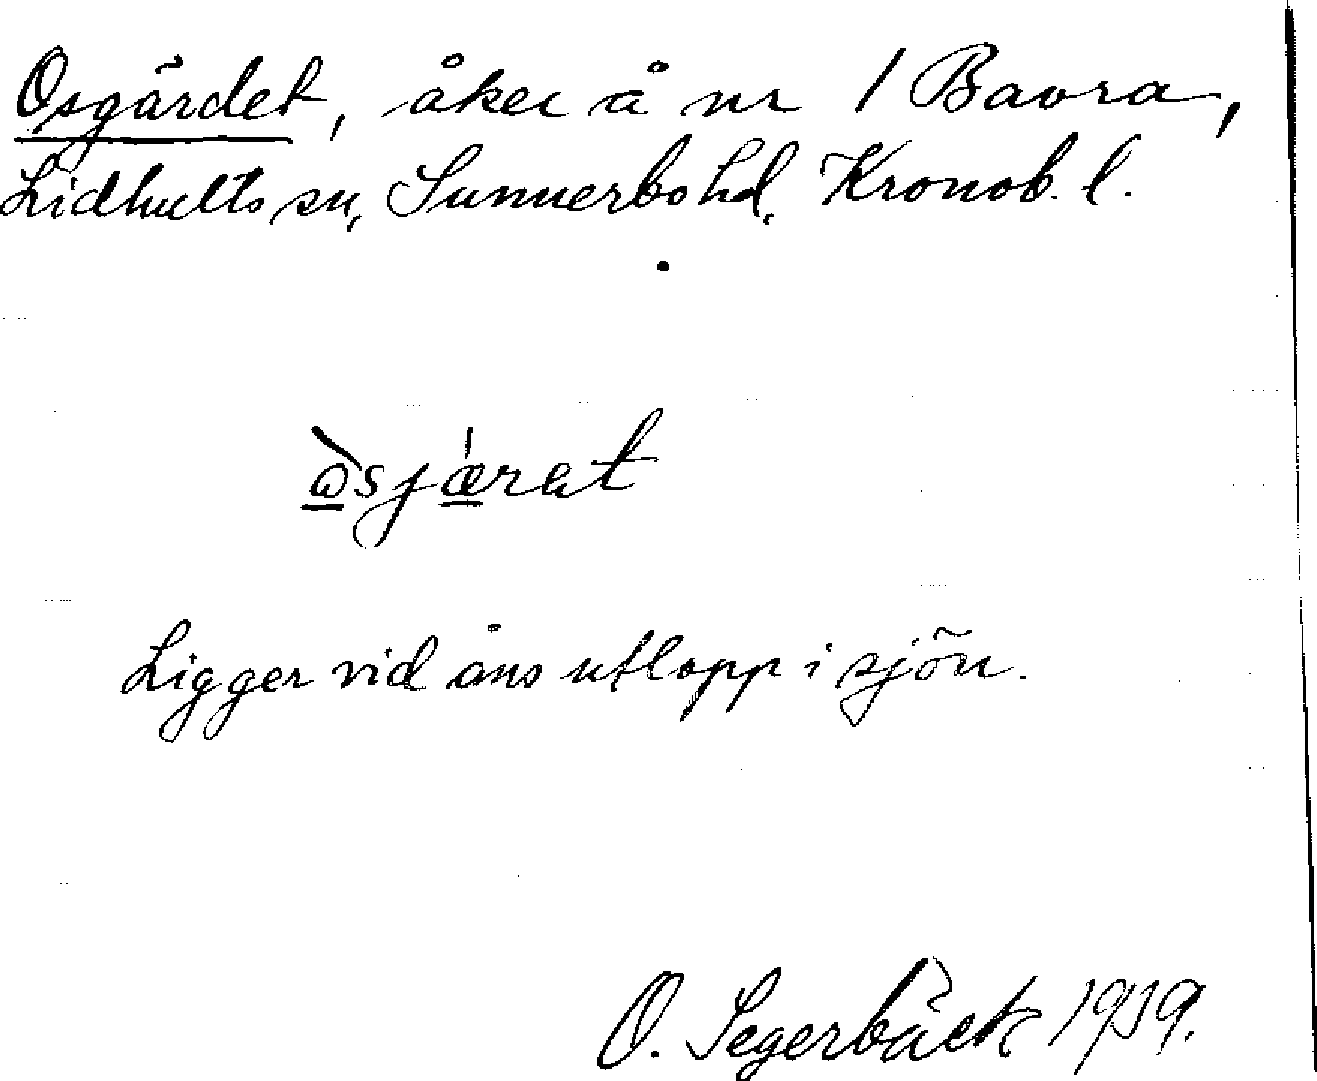 Osgärdet, åker å nr 1 Bavra,
Lidhults sn, Sunnerbo hd, Kronob. l.
òsjærat
Ligger vid åns utlopp i sjön.
O. Segerbäck 1939.